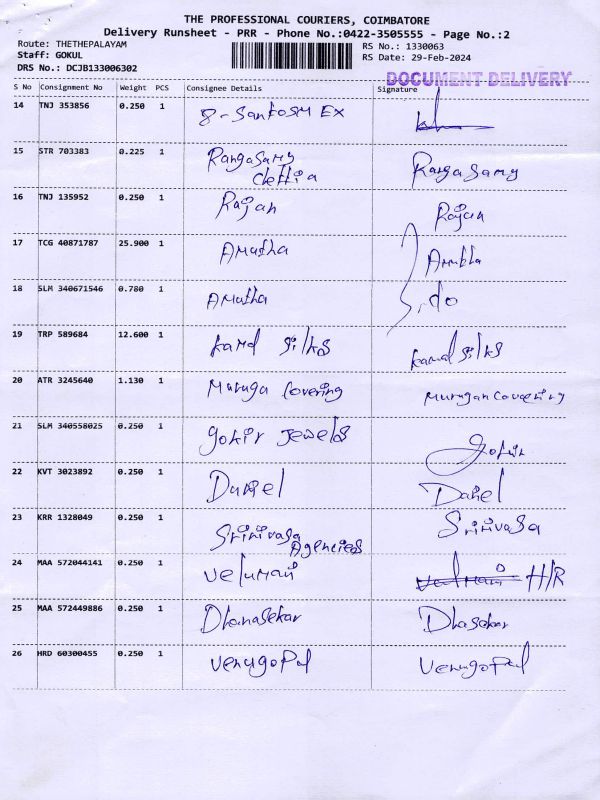 THE PROFESSIONAL COURIERS, COIMBATORE
Delivery Runsheet - PRR - Phone No.:0422-3505555 - Page No.:2
Route: THETHEPALAYAM
Staff: GOKUL
DRS No.: DCJB133006302
RS No.: 1330063
RS Date: 29-Feb-2024
DOCUMENT DELIVERY
S No Consignment No Weight PCS Consignee Details Signature
14 TNJ 353856 0.250 1 8-Santosm EX
15 STR 703383 0.225 1 Rangasamy Rangasamy
Chettia
16 TNJ 135952 0.250 1 Rajan Rajan
17 TCG 40871787 25.900 1 Amutha
18 SLM 340671546 0.780 1 Amutha do
19 TRP 589684 12.600 1 kamal silks kamal silks
20 ATR 3245640 1.130 1 Muruga Covering Murugan Covering
21 SLM 340558025 0.250 1 Jewels
22 KVT 3023892 0.250 1 Daniel Daniel
23 KRR 1328049 0.250 1 Srinivasa Srinivasa
Agencies
24 MAA 572044141 0.250 1 Velumani H/R
25 MAA 572449886 0.250 1 Dhanasekar Dhasekar
26 HRD 60300455 0.250 1 Venugopal Venugopal